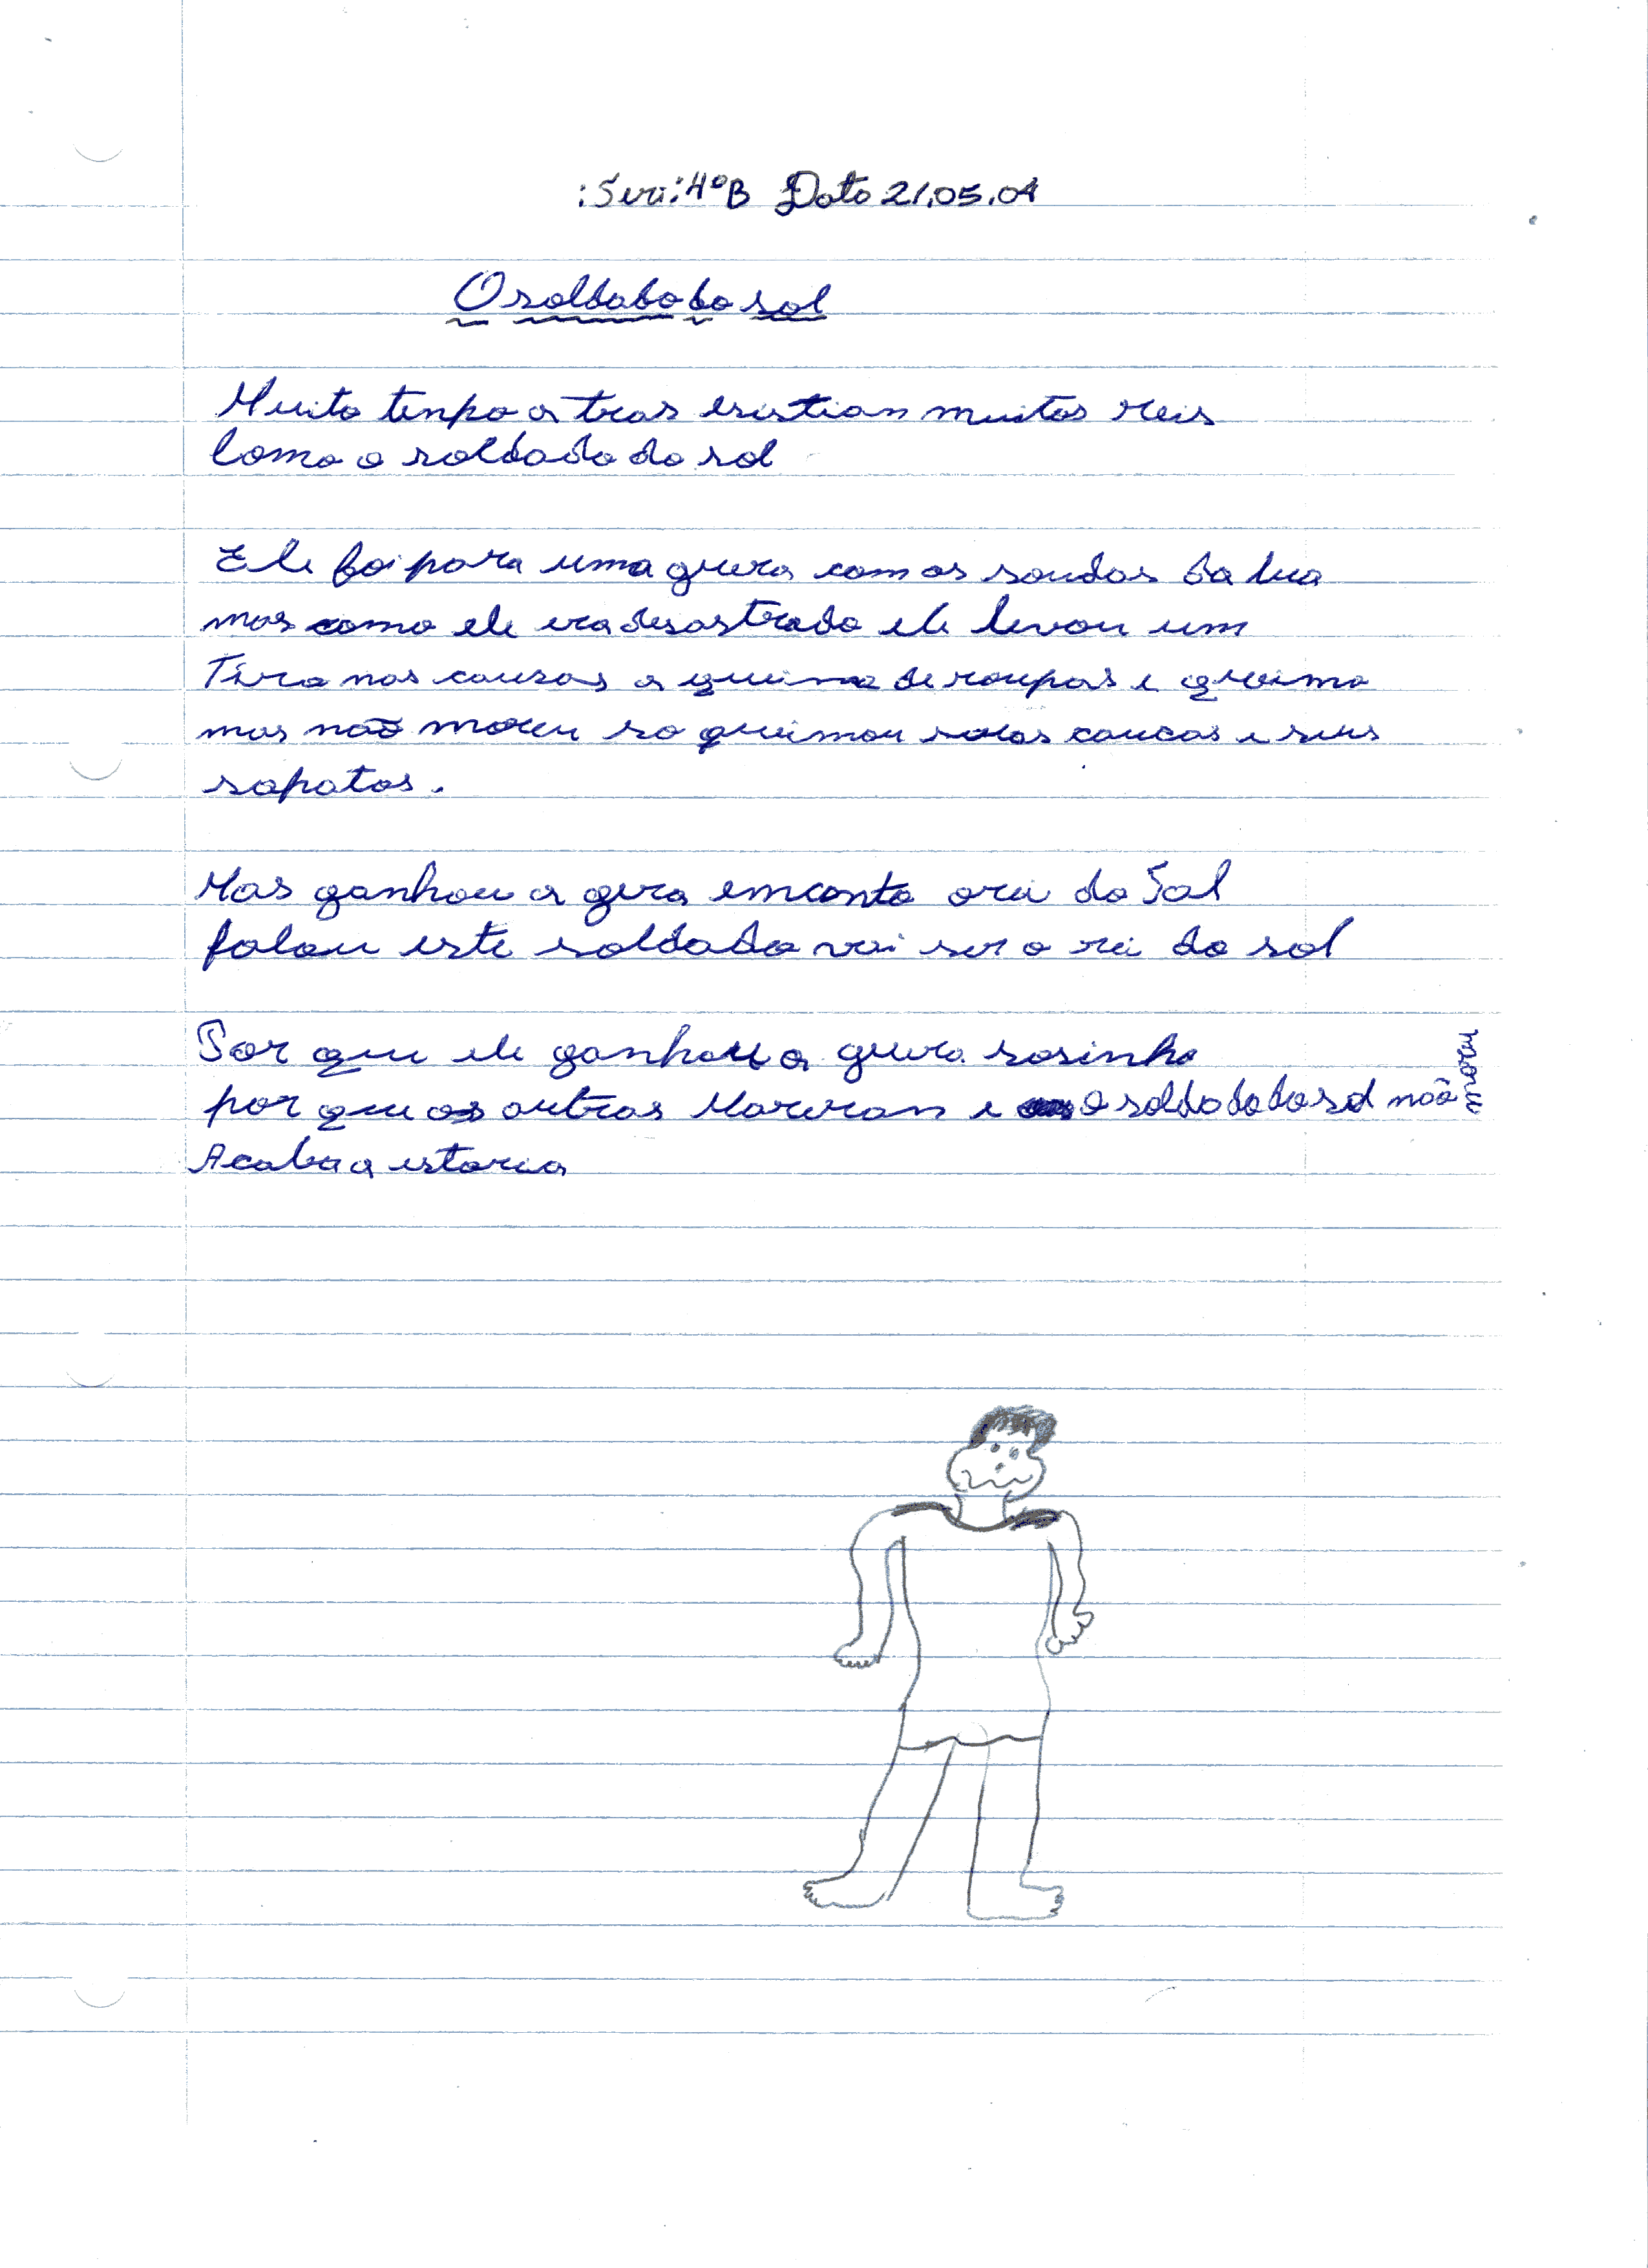 :Seri: 4ºB Data 21.05.04
O soldado do sol
Muito tenpo a tras esistian muitos reis
como o soldado do sol
Ele foi para uma guera com os soudos da lua
mas como ele era desastrado ele levou um
Tiro nas causas a queima de roupas e queima
mas não moreu so queimou suas caucas e seus
sapatos.
Mas ganhou a gera emconto o rei do Sol
falou este soldado vai ser o rei do sol
Por que ele ganhou a guera sosinho
por que os outros Moreran e o soldado do sol não moreu
Acaba a estoria